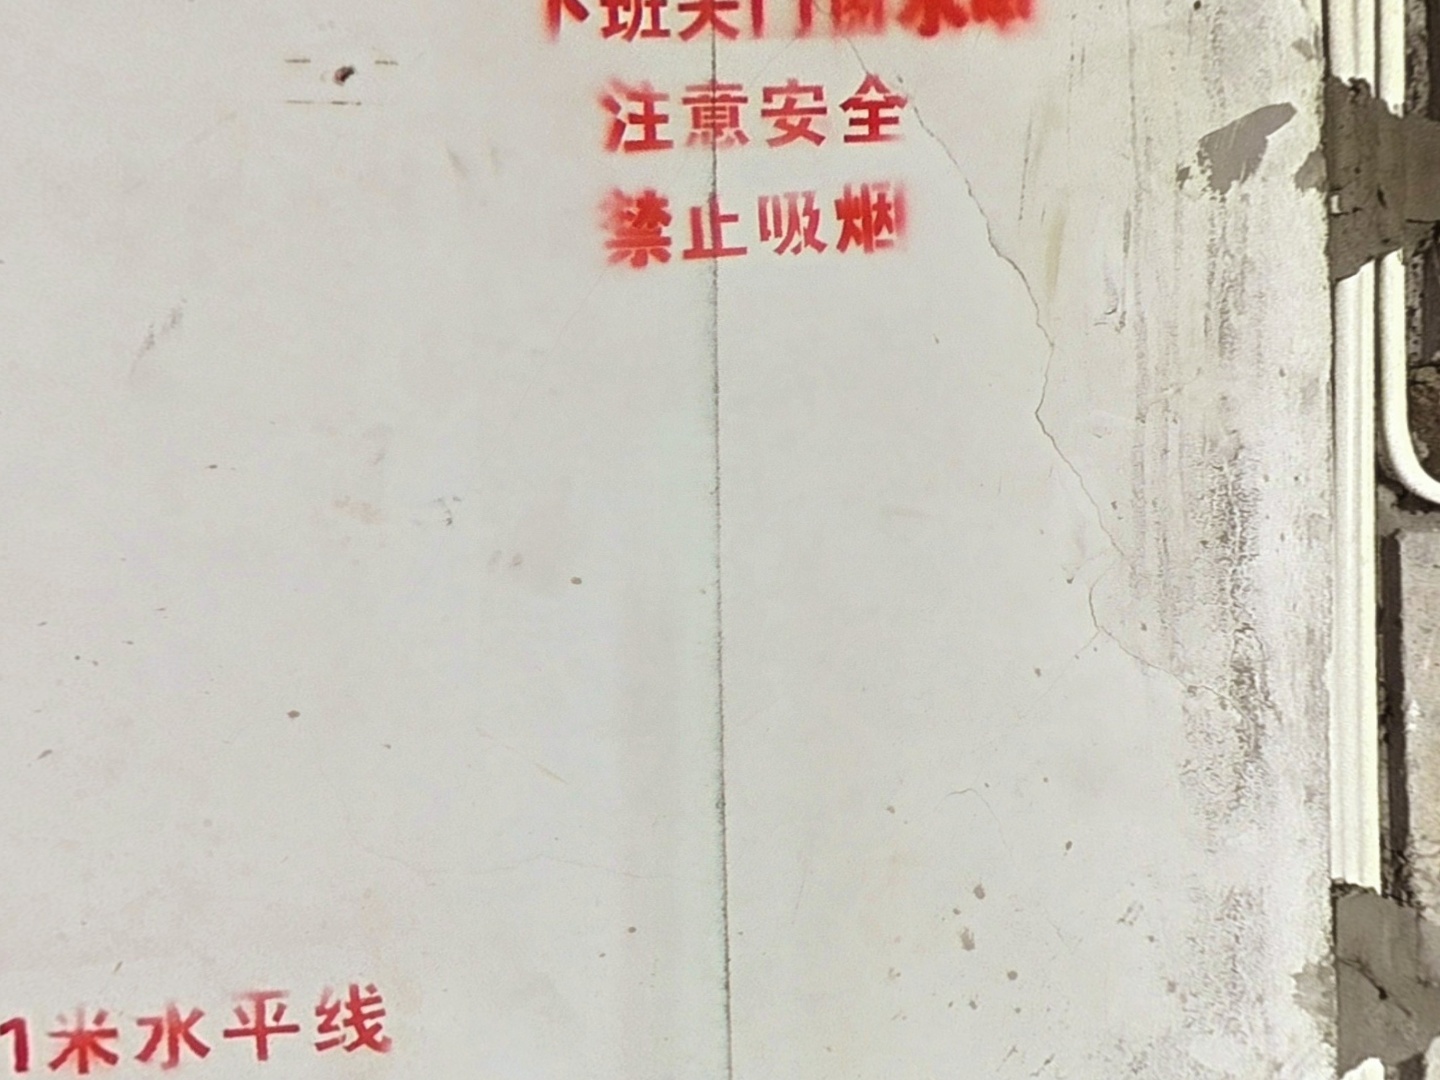 下班关门断水电
注意安全
禁止吸烟
1米水平线